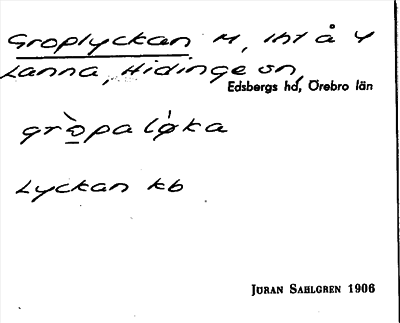 Groplyckan M, Int å 4
Lanna, Hidinge sn,
Edsbergs hd, Örebro län
gròpalø̀ka
Lyckan kb
JÖRAN SAHLGREN 1906